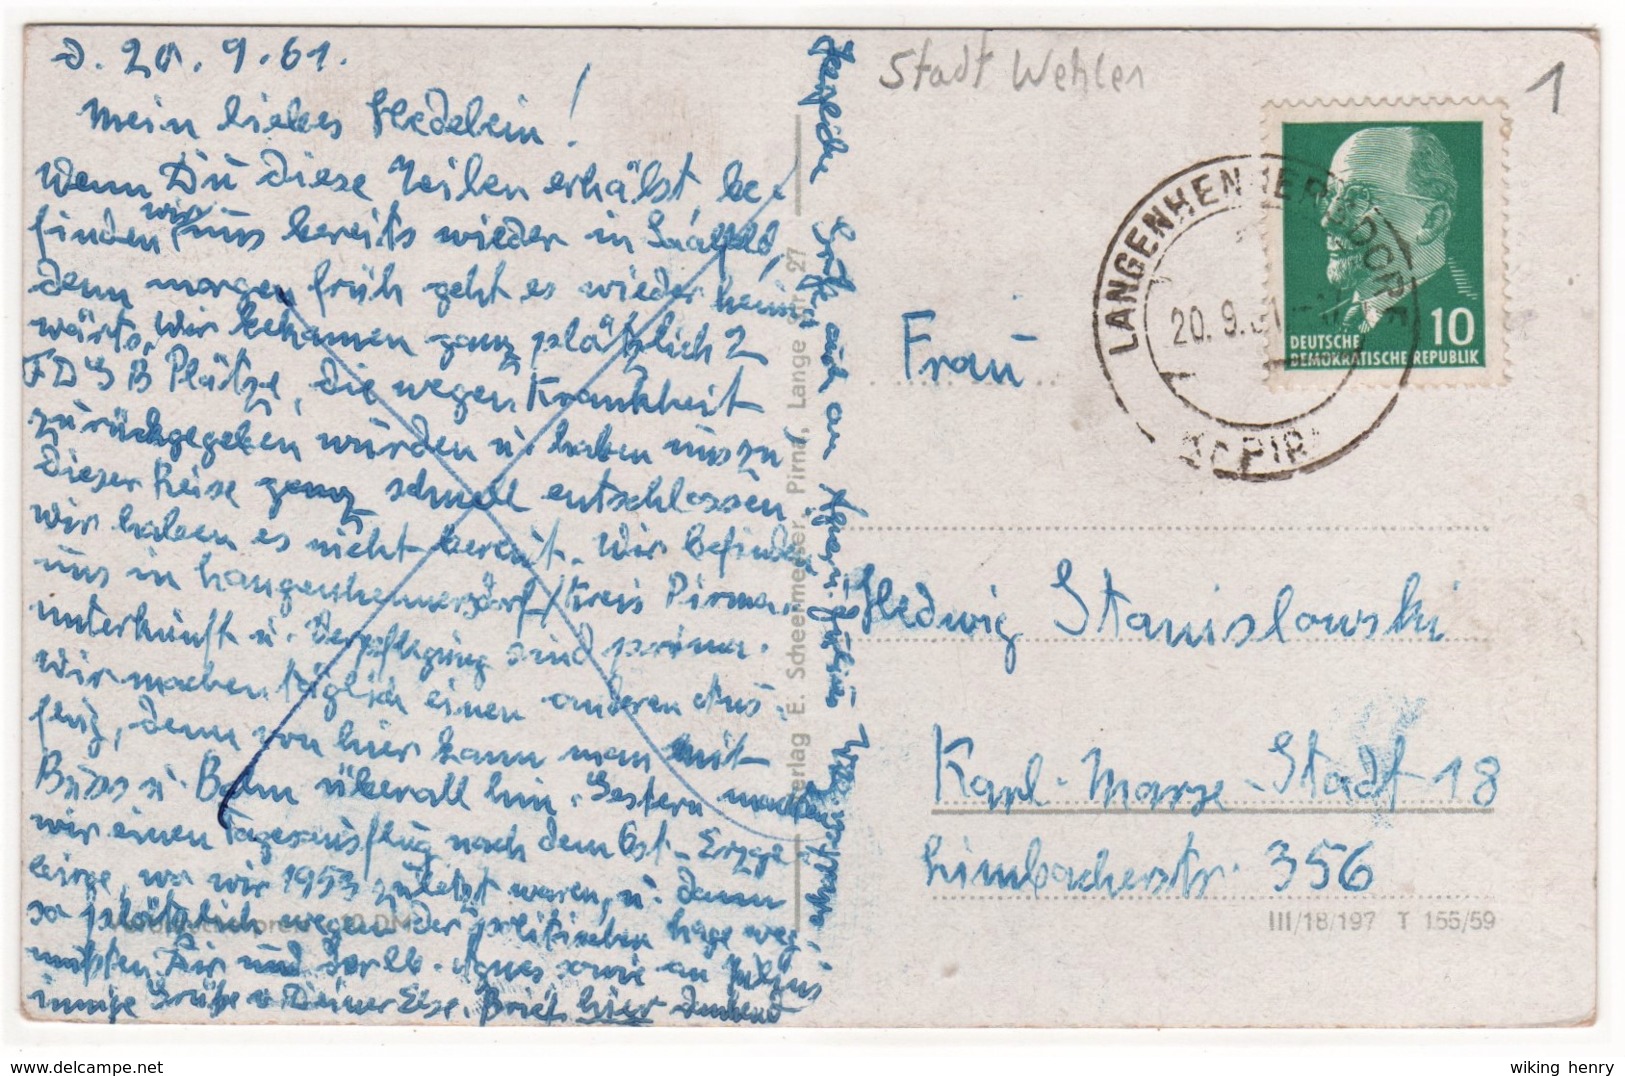 d. 20. 9. 61.
Mein liebes Hedelein!
Wenn Du diese Zeilen erhälst, be-
finden wir uns bereits wieder in Saalfeld,
denn morgen früh geht es wieder heim-
wärts. Wir bekamen ganz plötzlich 2
FDGB Plätze, die wegen Krankheit
zurückgegeben wurden u. haben uns zu
dieser Reise ganz schnell entschlossen.
Wir haben es nicht bereut. Wir befinden
uns in Langenhennersdorf/Kreis Pirna.
Unterkunft u. Verpflegung sind prima.
Wir machen täglich einen anderen Aus-
flug, denn von hier kann man mit
Buss u. Bahn überall hin. Gestern machten
wir einen Tagesausflug nach dem Ost-Erzge-
birge, wo wir 1953 zuletzt waren, u. dann
so plötzlich wegen der politischen Lage weg
mußten. Dir und
Agnes sowie an
innige Grüße v. Deiner Else. Brief hier dankend
Herzliche Grüße auch an Agnes u.
Verlag E. Scheermesser, Pirna, Lange Str. 27
10 DM
Stadt Wehlen
1
LANGENHENNERSDORF
20. 9. 61
PIR
10
DEUTSCHE
DEMOKRATISCHE REPUBLIK
Frau
Hedwig Stanislowski
Karl-Marx-Stadt 18
Limbacherstr. 356
III/18/197 T 155/59
wiking henry